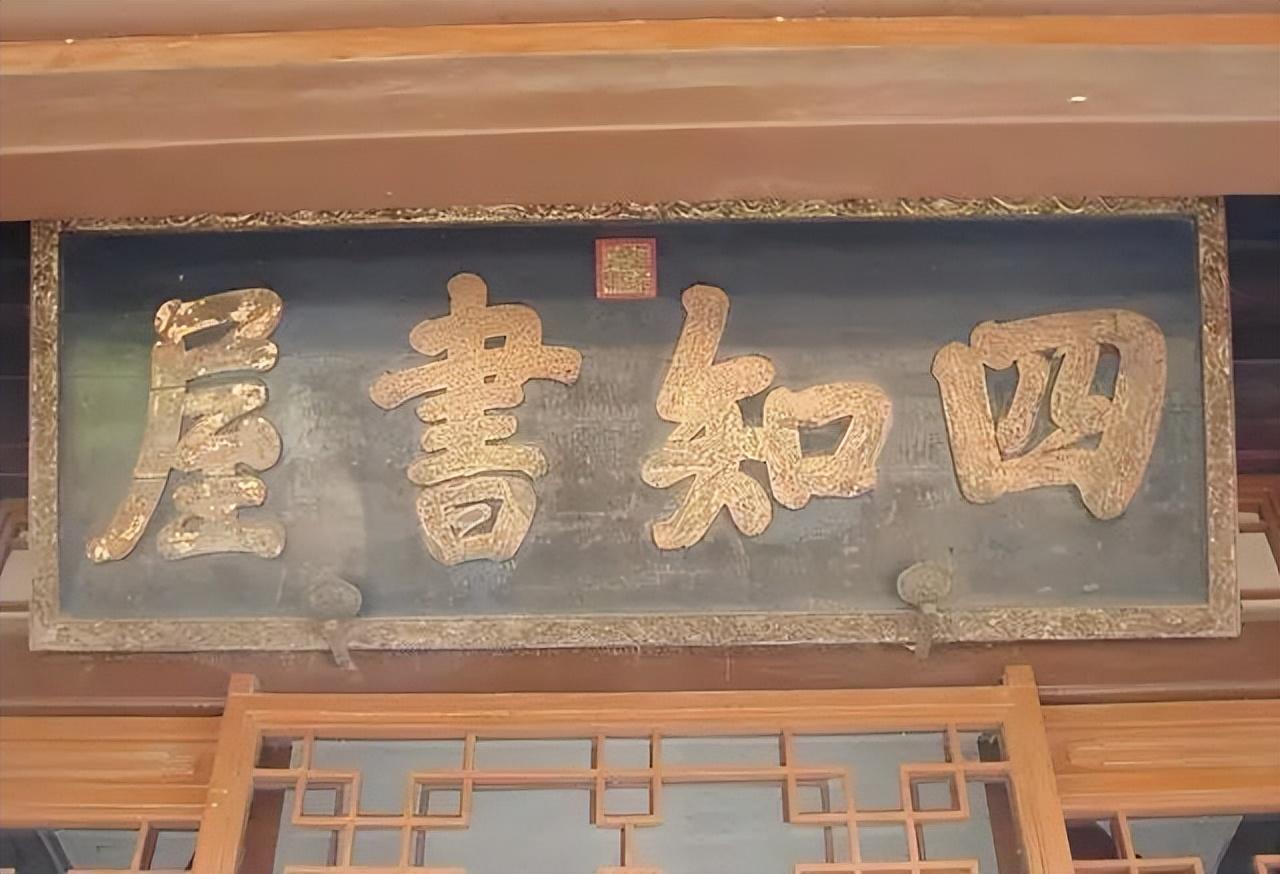 四知書屋